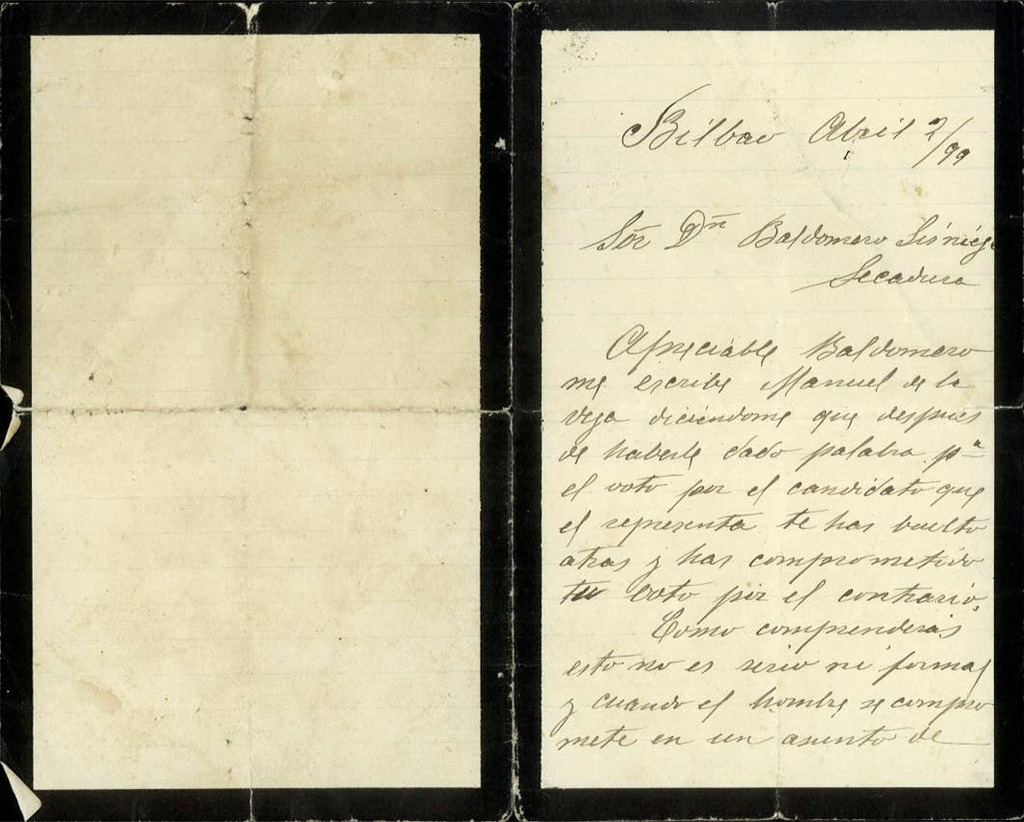 Bilbao Abril 2/99
Sor Dn Baldomero
Secadura
Apreciable Baldomero
me escribe Manuel de la
Vega diciendome que despues
de haberle dado palabra pa
el voto por el candidato que
el representa te has vuelto
atras y has comprometido
tu voto por el contrario.
Como comprenderás
esto no es serio ni formal
y cuando el hombre se compro
mete en un asunto de